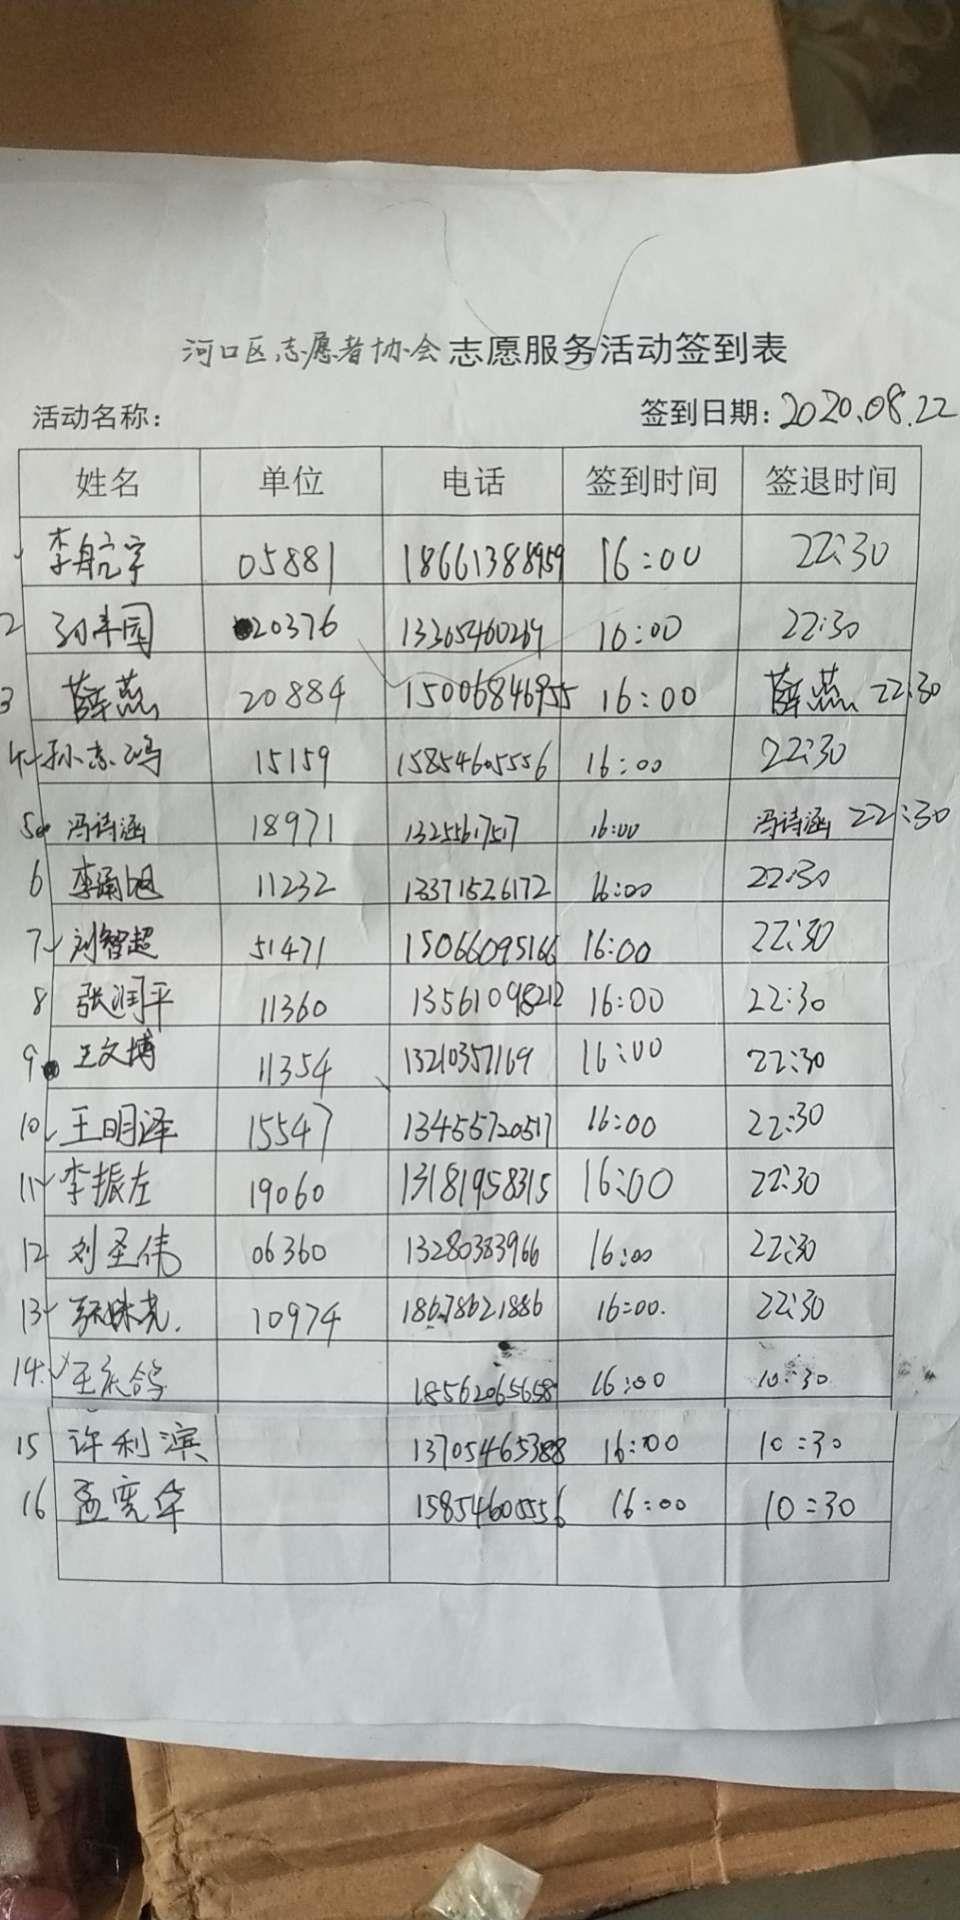 河口区志愿者协会 志愿服务活动签到表
活动名称： 签到日期：2020.08.22
姓名 单位 电话 签到时间 签退时间
李航宇 05881 18661388959 16:00 22:30
2 20376 13365460269 16:00 22:30
3 薛燕 20884 15006846955 16:00 薛燕 22:30
4 孙志鸿 15159 15854605556 16:00 22:30
5 冯诗涵 18971 13255617517 16:00 冯诗涵 22:30
6 11232 13371526172 16:00 22:30
7 刘智超 51471 15066095166 16:00 22:30
8 张润平 11360 13561098212 16:00 22:30
9 王文博 11354 13210357169 16:00 22:30
10 王明泽 15547 13455720517 16:00 22:30
11 李振左 19060 13181958315 16:00 22:30
12 刘圣伟 06360 13280383966 16:00 22:30
13 10974 18678621886 16:00. 22:30
14. 王庆鸽 18562065658 16:00 10:30
15 许利滨 13705465388 16:00 10:30
16 孟宪华 15854605556 16:00 10:30